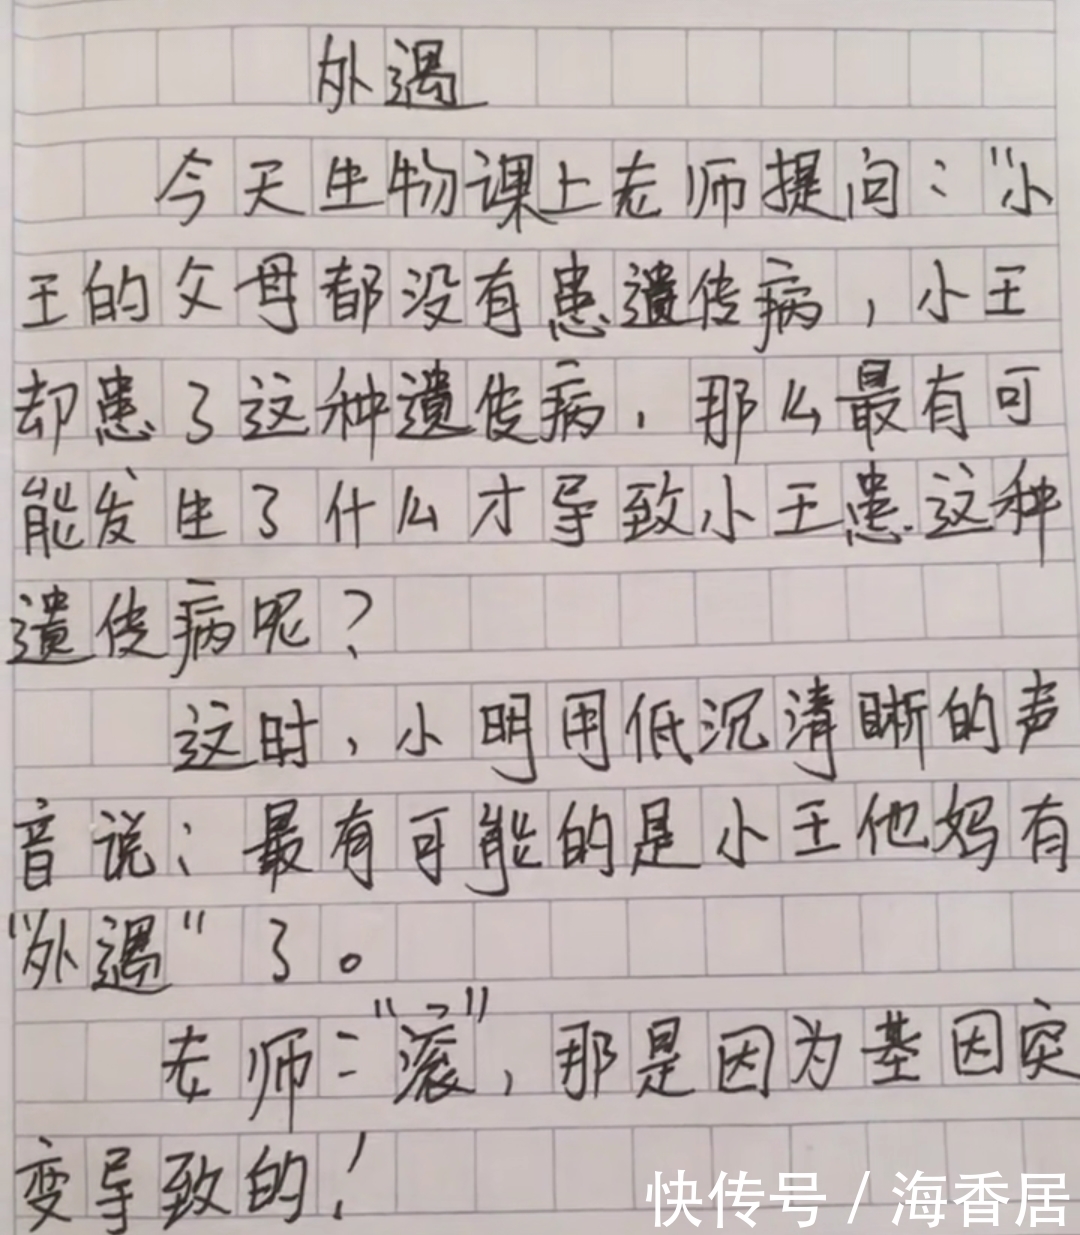 外遇
今天生物课上老师提问:"小
王的父母都没有患遗传病,小王
却患了这种遗传病,那么最有可
能发生了什么才导致小王患这种
遗传病呢?
这时,小明用低沉清晰的声
音说:最有可能的是小王他妈有
"外遇"了。
老师:"滚",那是因为基因突
变导致的!
快传号 / 海香居